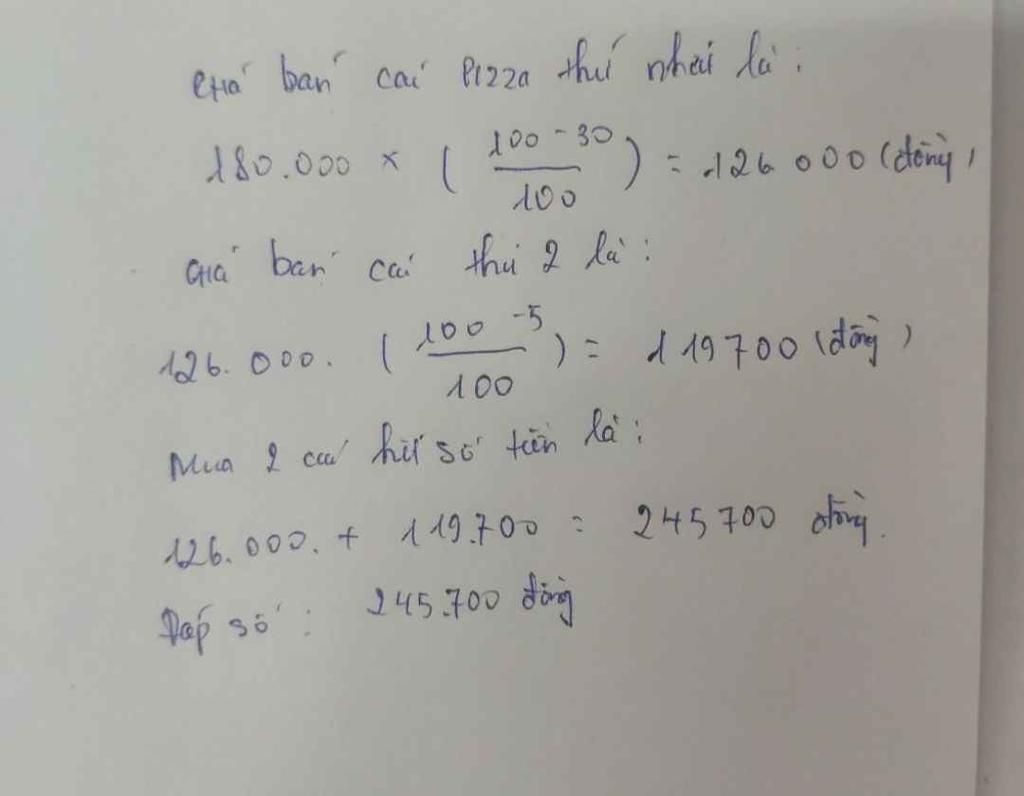 Giá bán cái Pizza thứ nhất là:
180.000 × ( (100 - 30)/100 ) = 126 000 (đồng)
Giá bán cái thứ 2 là:
126.000. ( (100 - 5)/100 ) = 119700 (đồng)
Mua 2 cái hết số tiền là:
126.000. + 119.700 = 245700 đồng.
Đáp số: 245.700 đồng